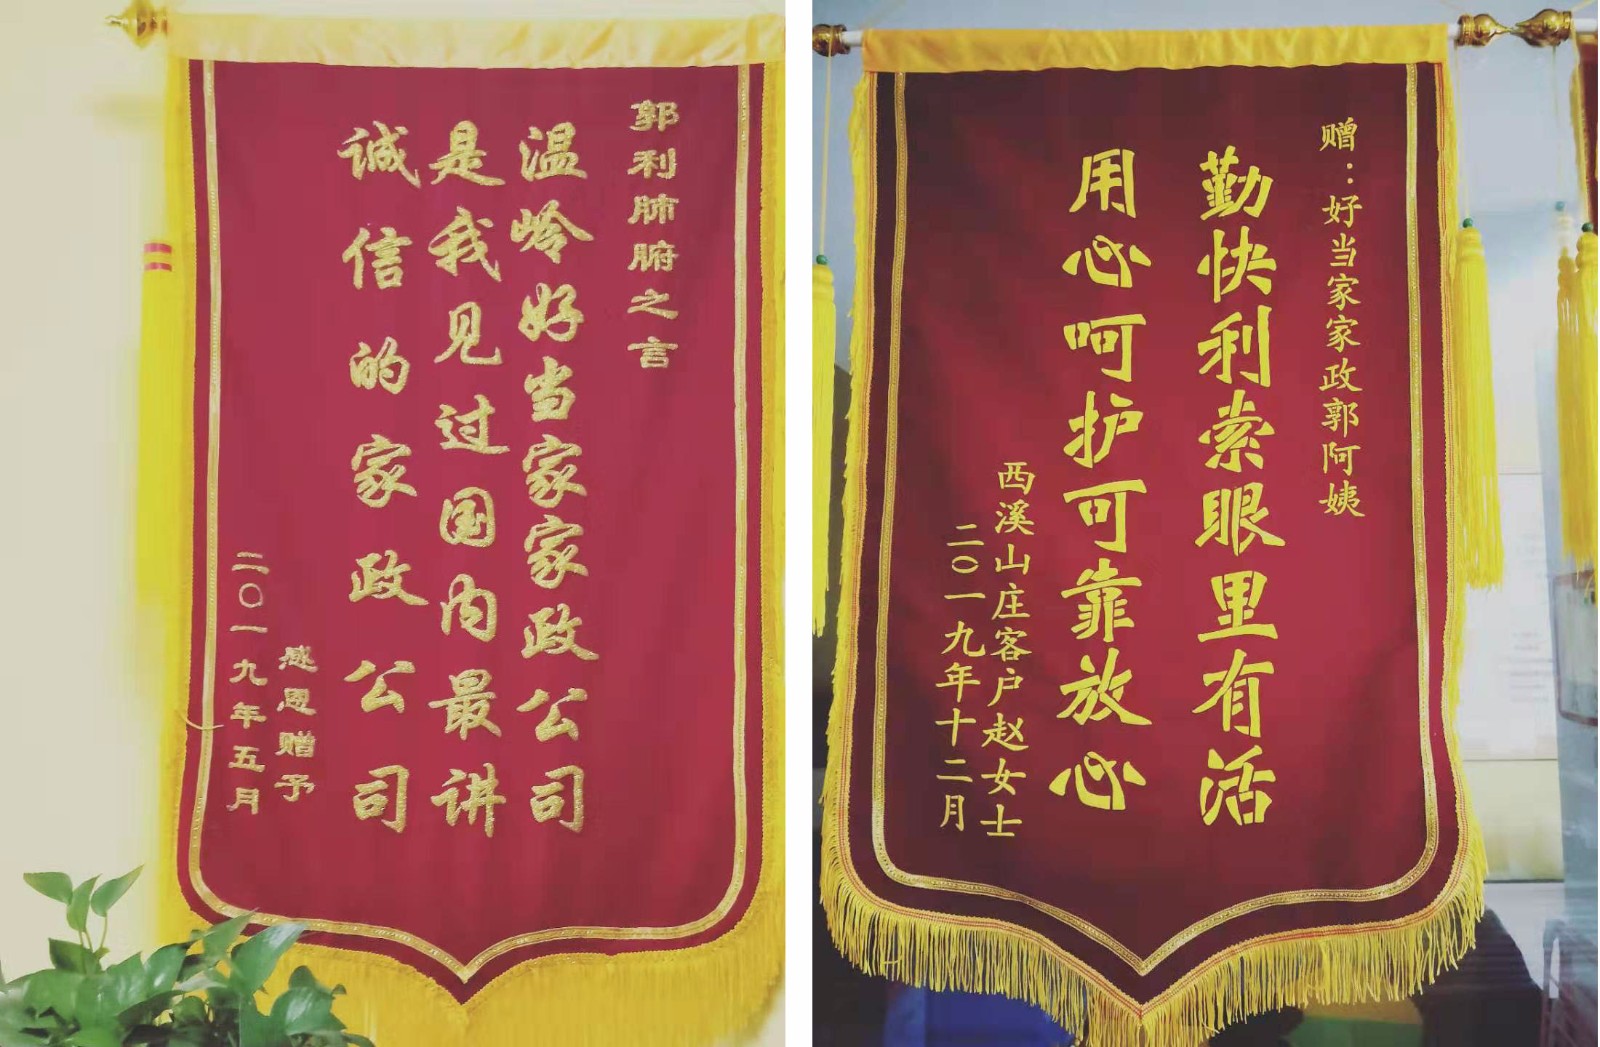 郭利肺腑之言
温岭好当家家政公司
是我见过国内最讲
诚信的家政公司
感恩赠予
二〇一九年五月
赠：好当家家政郭阿姨
勤快利索眼里有活
用心呵护可靠放心
西溪山庄客户赵女士
二〇一九年十二月